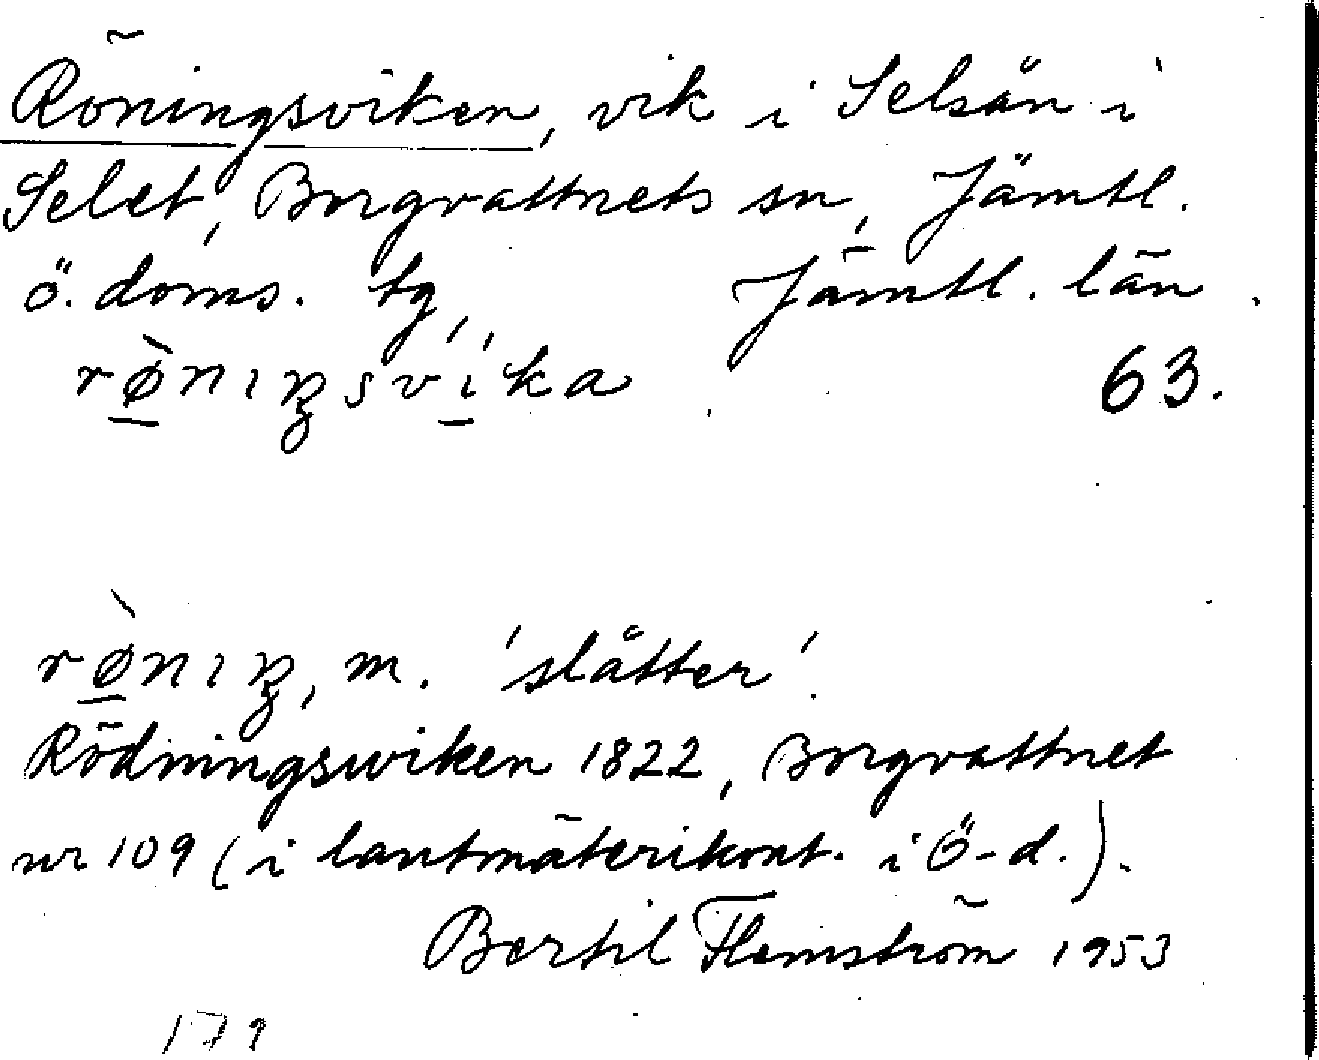 Röningsviken, vik i Selsån i
Selet, Borgvattnets sn, Jämtl.
ö. doms. tg, Jämtl. län.
rø̀nıŋsvíka 63.
rø̀nıŋ, m. 'slåtter'.
Rödningswiken 1822, Borgvattnet
nr 109 (i lantmäterikont. i Ö-d.).
Bertil Flemström 1953
179